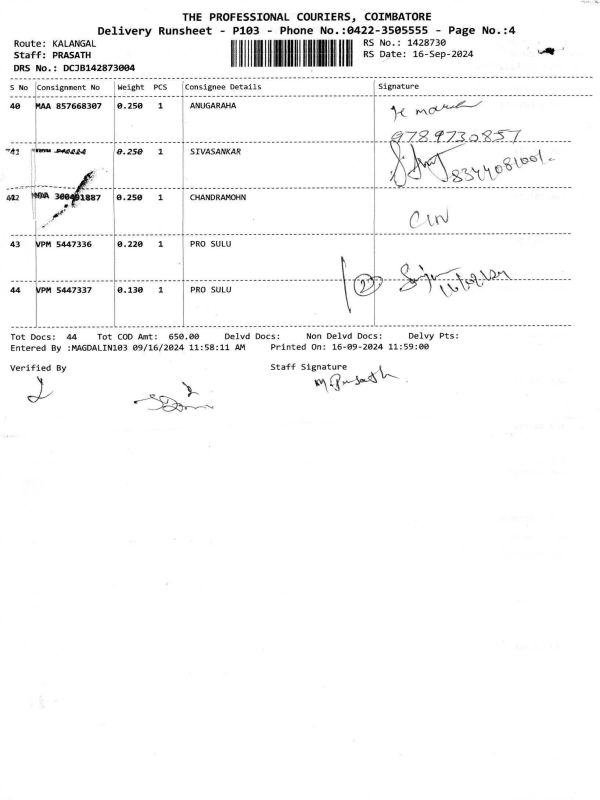 THE PROFESSIONAL COURIERS, COIMBATORE
Delivery Runsheet - P103 - Phone No.:0422-3505555 - Page No.:4
Route: KALANGAL RS No.: 1428730
Staff: PRASATH RS Date: 16-Sep-2024
DRS No.: DCJB142873004
S No Consignment No Weight PCS Consignee Details Signature
40 MAA 857668307 0.250 1 ANUGARAHA
9789730857
41 0.250 1 SIVASANKAR
8344081001
42 300491887 0.250 1 CHANDRAMOHN
43 VPM 5447336 0.220 1 PRO SULU
44 VPM 5447337 0.130 1 PRO SULU
Tot Docs: 44 Tot COD Amt: 650.00 Delvd Docs: Non Delvd Docs: Delvy Pts:
Entered By :MAGDALIN103 09/16/2024 11:58:11 AM Printed On: 16-09-2024 11:59:00
Verified By Staff Signature
M.Prasath